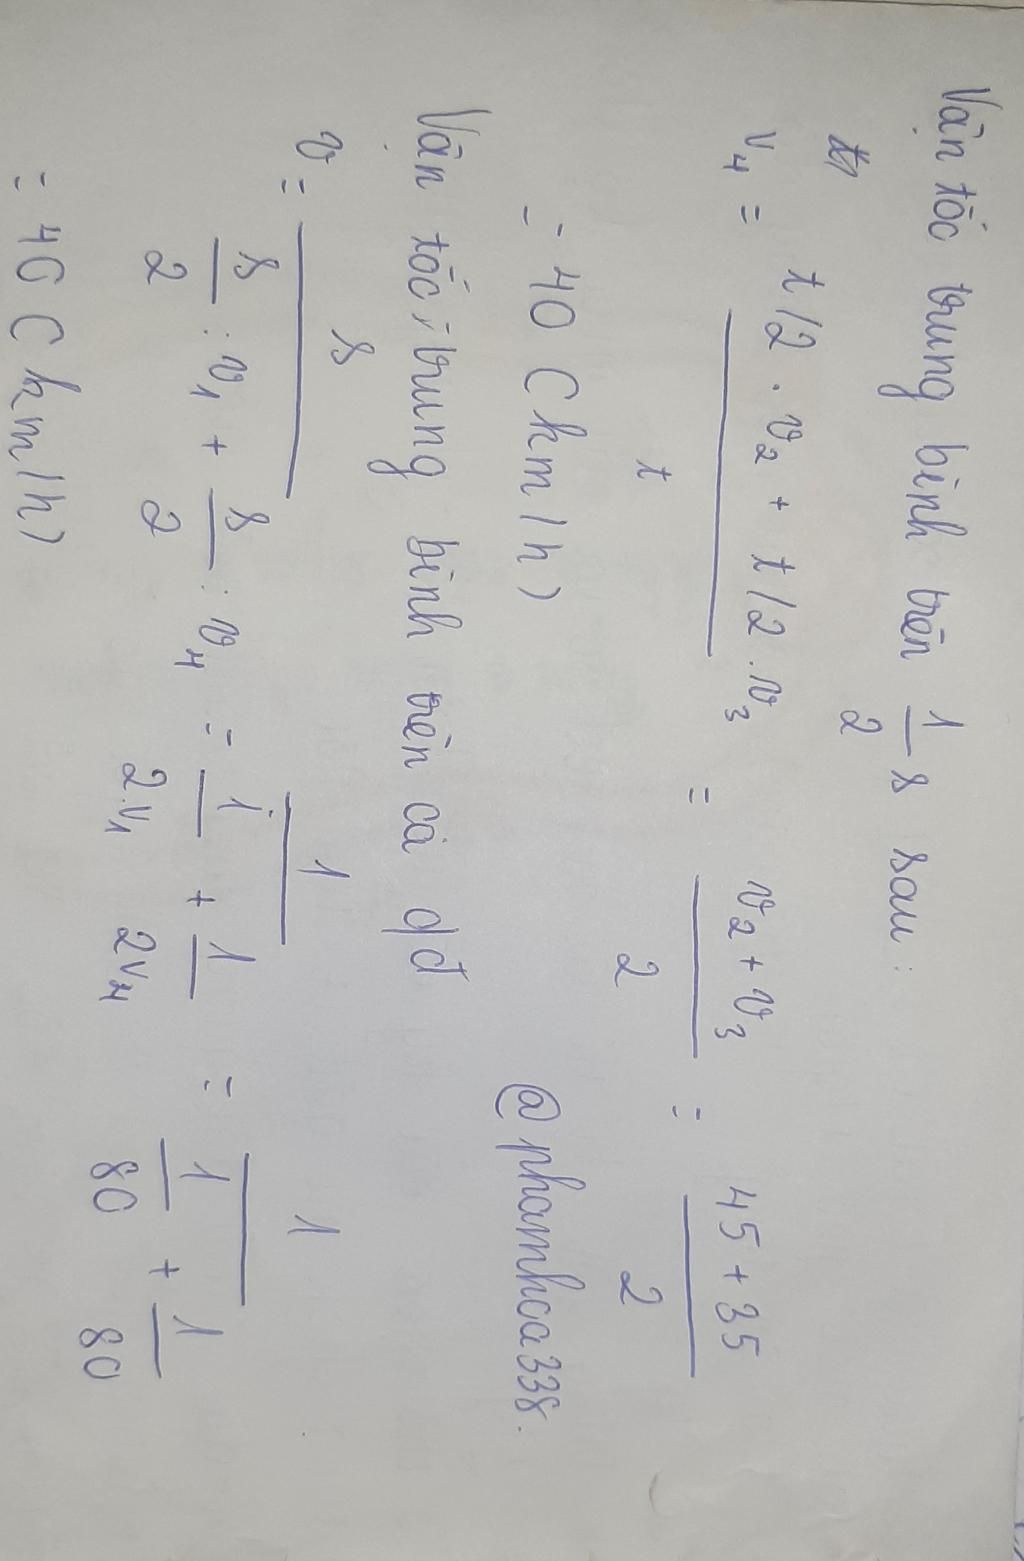 Vận tốc trung bình trên 1/2 s sau :
v4 = (t/2 . v2 + t/2 . v3) / t = (v2 + v3) / 2 = (45 + 35) / 2
= 40 (km/h)
@phamhoa338.
Vận tốc trung bình trên cả qđ
v = s / (s/2 : v1 + s/2 : v4) = 1 / (1/2.v1 + 1/2v4) = 1 / (1/80 + 1/80)
= 40 (km/h)